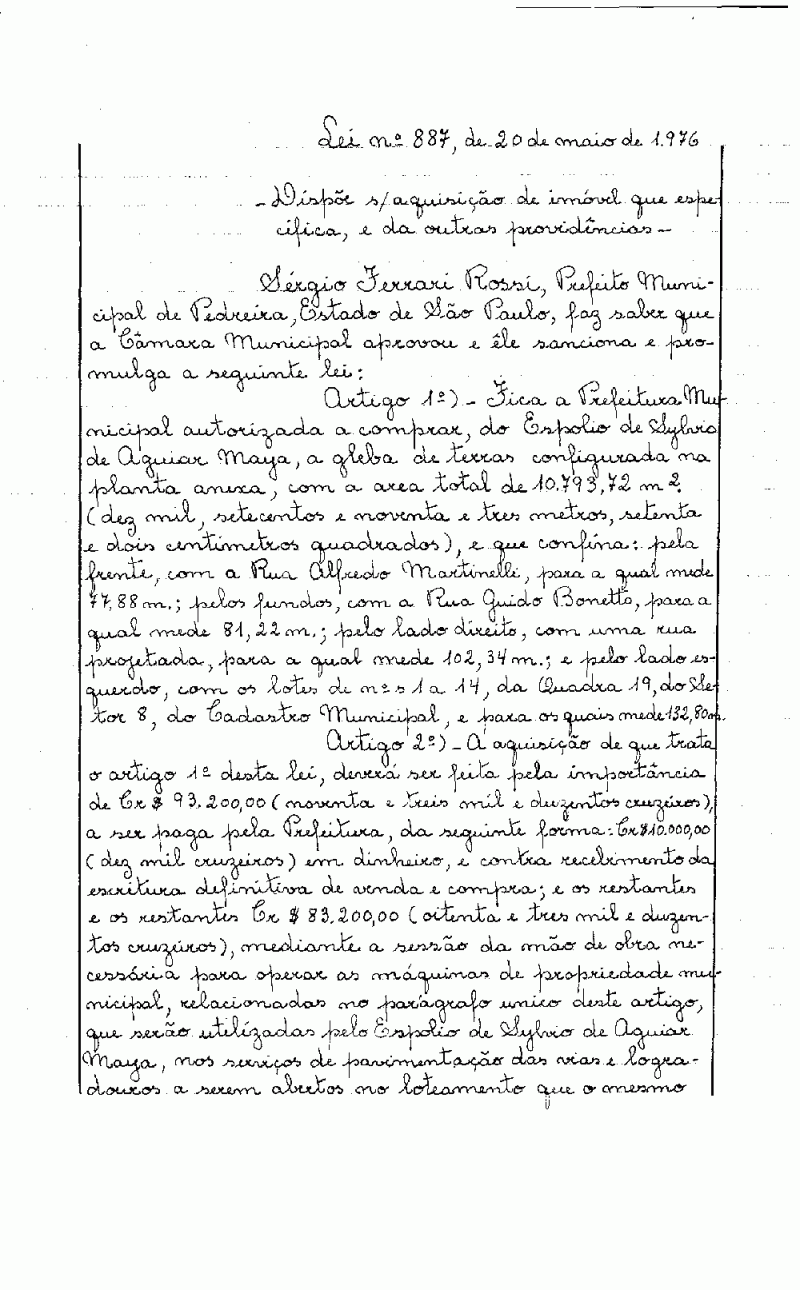 Lei nº 887, de 20 de maio de 1.976
- Dispõe s/aquisição de imóvel que espe-
cifica, e da outras providências -
Sérgio Ferrari Rossi, Prefeito Muni-
cipal de Pedreira, Estado de São Paulo, faz saber que
a Câmara Municipal aprovou e êle sanciona e pro-
mulga a seguinte lei:
Artigo 1º) - Fica a Prefeitura Mu-
nicipal autorizada a comprar, do Espolio de Sylvio
de Aguiar Maya, a gleba de terras configurada na
planta anexa, com a area total de 10.793,72 m2.
(dez mil, setecentos e noventa e tres metros, setenta
e dois centimetros quadrados), e que confina: pela
frente, com a Rua Alfredo Martinelli, para a qual mede
77,88 m.; pelos fundos, com a Rua Guido Bonetto, para a
qual mede 81,22 m.; pelo lado direito, com uma rua
projetada, para a qual mede 102,34 m.; e pelo lado es-
querdo, com os lotes de nºs 1 a 14, da Quadra 19, do Se-
tor 8, do Cadastro Municipal, e para os quais mede 132,80 m.
Artigo 2º) - A aquisição de que trata
o artigo 1º desta lei, deverá ser feita pela importância
de Cr $ 93.200,00 (noventa e treis mil e duzentos cruzeiros),
a ser paga pela Prefeitura, da seguinte forma: Cr $10.000,00
(dez mil cruzeiros) em dinheiro, e contra recebimento da
escritura definitiva de venda e compra; e os restantes
e os restantes Cr $ 83.200,00 (oitenta e tres mil e duzen-
tos cruzeiros), mediante a sessão da mão de obra ne-
cessária para operar as máquinas de propriedade mu-
nicipal, relacionadas no parágrafo unico deste artigo,
que serão utilizadas pelo Espolio de Sylvio de Aguiar
Maya, nos serviços de pavimentação das vias e logra-
douros a serem abertos no loteamento que o mesmo